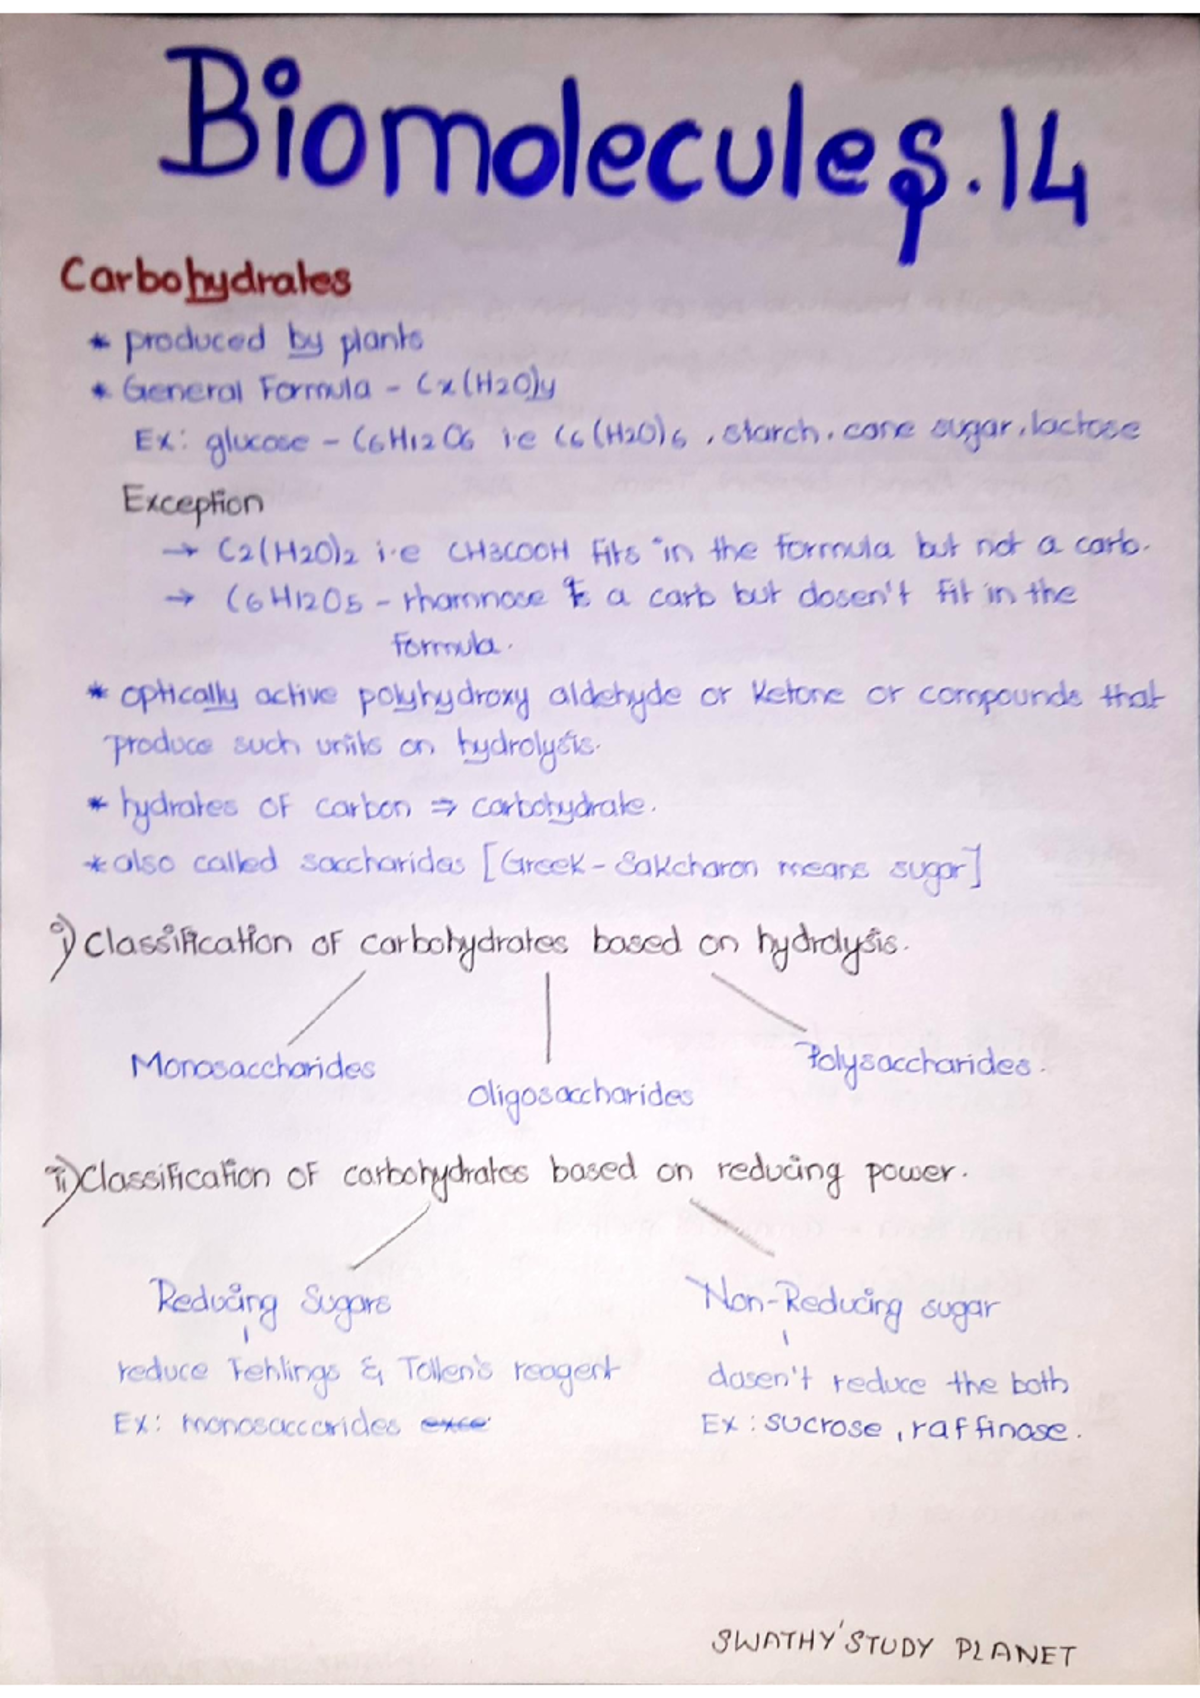 Biomolecules.14
Carbohydrates
* produced by plants
* General Formula - Cx(H2O)y
Ex: glucose - C6H12O6 i.e C6(H2O)6, starch, cane sugar, lactose
Exception
→ C2(H2O)2 i.e CH3COOH fits in the formula but not a carb.
→ C6H12O5 - rhamnose is a carb but dosen't fit in the
formula.
* optically active polyhydroxy aldehyde or ketone or compounds that
produce such units on hydrolysis.
* hydrates of carbon ⇒ carbohydrate.
* also called saccharides [Greek - Sakcharon means sugar]
i) Classification of carbohydrates based on hydrolysis.
Monosaccharides
Oligosaccharides
Polysaccharides.
ii) Classification of carbohydrates based on reducing power.
Reducing Sugars
Non-Reducing sugar
reduce Fehlings & Tollen's reagent
dosen't reduce the both
Ex: monosaccarides exce
Ex: sucrose, raffinose.
SWATHY'STUDY PLANET